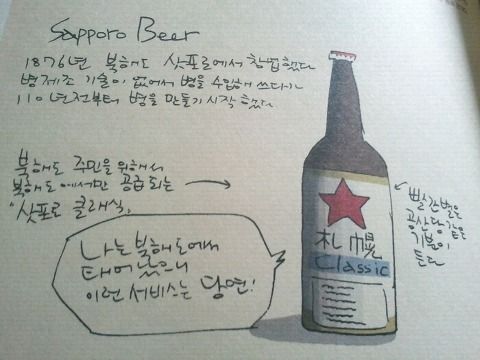 Sapporo Beer
1876년 북해도 삿포로에서 창업했다
병제조 기술이 없어서 병을 수입해 쓰다가
110년전부터 병을 만들기 시작했다.
북해도 주민을 위해서
북해도에서만 공급되는
"삿포로 클래식,
나는 북해도에서
태어났으니
이런 서비스는 당연!
札幌
Classic
빨간별은
공산당 같은
기분이
든다